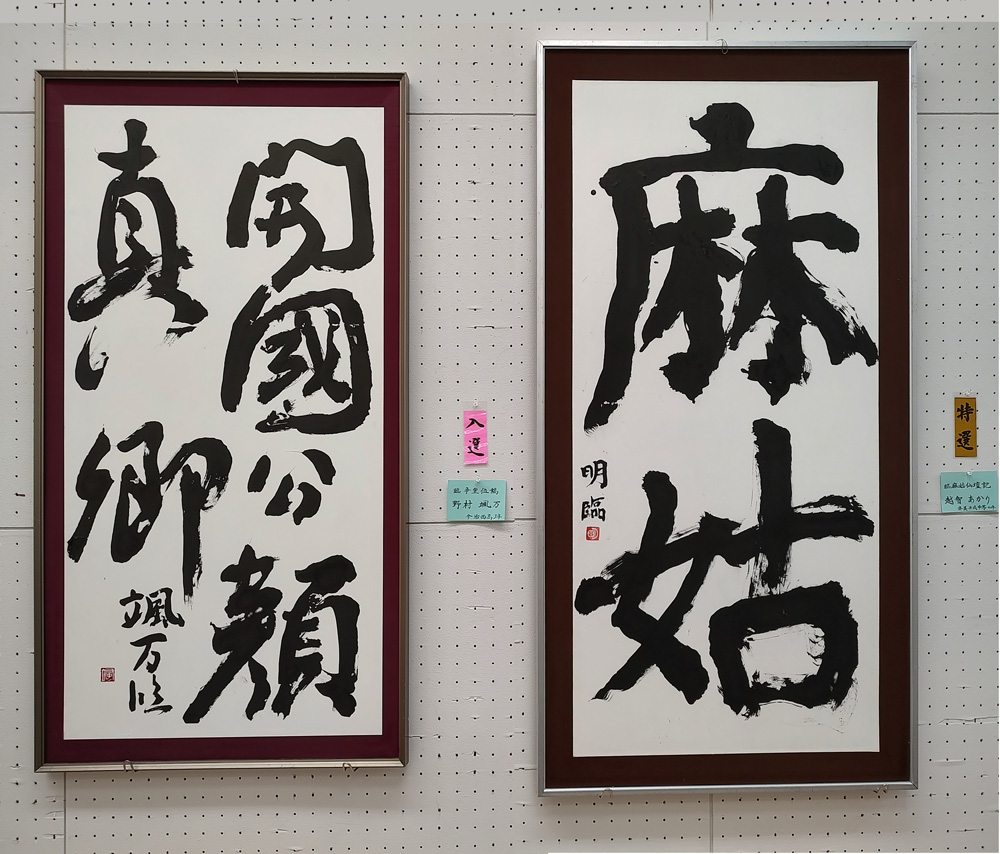 開國公顔
真卿
颯万臨
入選
臨 争坐位稿
野村 颯万
麻姑
明臨
特選
臨麻姑仙壇記
越智 あかり